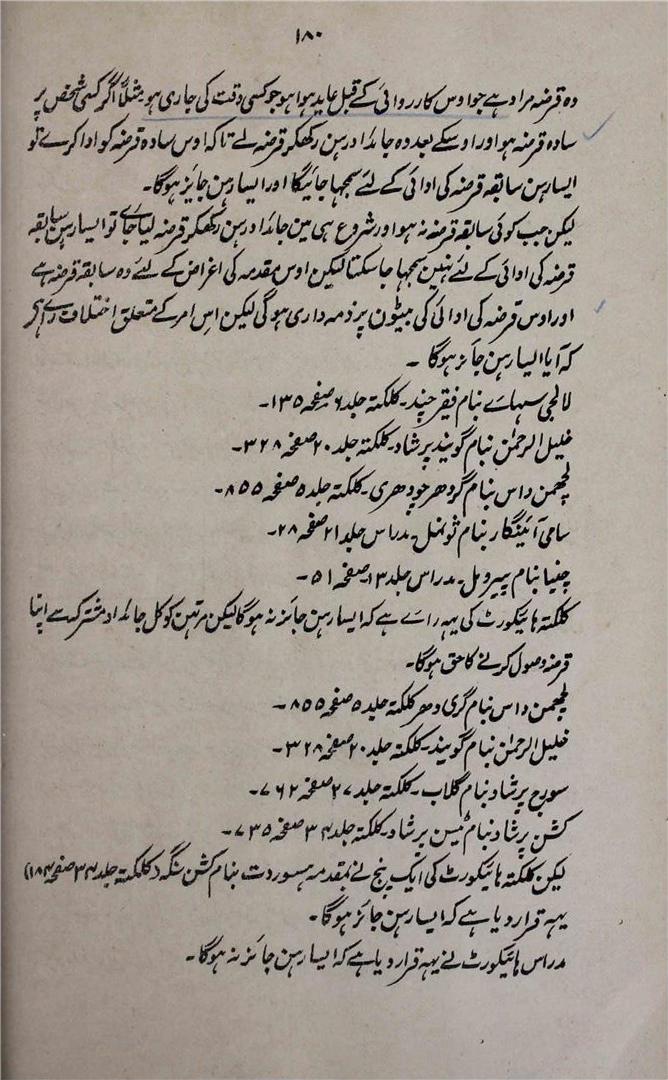 ۱۸۰
وہ قرضہ مراد ہے جو اوس کارروائی کے قبل عاید ہوا ہو جو کسی وقت کی جاری ہو مثلاً اگر کسی شخص پر
سادہ قرضہ ہو اور اوسکے بعد وہ جائداد رہن رکھکر قرضہ لے تاکہ اوس سادہ قرضہ کو ادا کرے تو
ایسا رہن سابقہ قرضہ کی ادائی کے لئے سمجھا جائیگا اور ایسا رہن جایز ہوگا۔
لیکن جب کوئی سابقہ قرضہ نہ ہو اور شروع ہی مین جائداد رہن رکھکر قرضہ لیا جاے تو ایسا رہن سابقہ
قرضہ کی ادائی کے لئے نہین سمجھا جاسکتا لیکن اوس مقدمہ کی اغراض کے لئے وہ سابقہ قرضہ ہے
اور اوس قرضہ کی ادائی کی بیٹون پر ذمہ داری ہوگی لیکن اس امر کے متعلق اختلاف رائے ہے
کہ آیا ایسا رہن جائز ہوگا ۔
لالجی سہاے بنام فقیر چند۔ کلکتہ جلد ۶ صفحہ ۱۳۵۔
خلیل الرحمٰن بنام گویند پرشاد۔ کلکتہ جلد ۲۰ صفحہ ۳۲۸۔
لچھمن داس بنام گردھر چودھری۔ کلکتہ جلد ۵ صفحہ ۸۵۵۔
سامی آئینگار بنام ثونمل۔ مدراس جلد ۲۱ صفحہ ۲۸۔
چنیا بنام پیرومل۔ مدراس جلد ۱۳ صفحہ ۵۱۔
کلکتہ ہائیکورٹ کی یہہ راے ہے کہ ایسا رہن جائز نہ ہوگا لیکن مرتہن کو کل جائداد مشترکہ سے اپنا
قرضہ وصول کرنے کا حق ہوگا۔
لچھمن داس بنام گری دھر کلکتہ جلد ۵ صفحہ ۸۵۵۔
خلیل الرحمٰن بنام گویند۔ کلکتہ جلد ۲۰ صفحہ ۳۲۸۔
سورج پرشاد بنام گلاب۔ کلکتہ جلد ۲۷ صفحہ ۷۶۲۔
کشن پرشاد بنام ٹیپن پرشاد۔ کلکتہ جلد ۳۴ صفحہ ۷۳۵۔
لیکن کلکتہ ہائیکورٹ کی ایک بنچ نے بمقدمہ ہسوردت بنام کشن سنگہ (کلکتہ جلد ۳۴ صفحہ ۱۸۴)
یہہ قرار دیا ہے کہ ایسا رہن جائز ہوگا۔
مدراس ہائیکورٹ نے یہہ قرار دیا ہے کہ ایسا رہن جائز نہ ہوگا۔